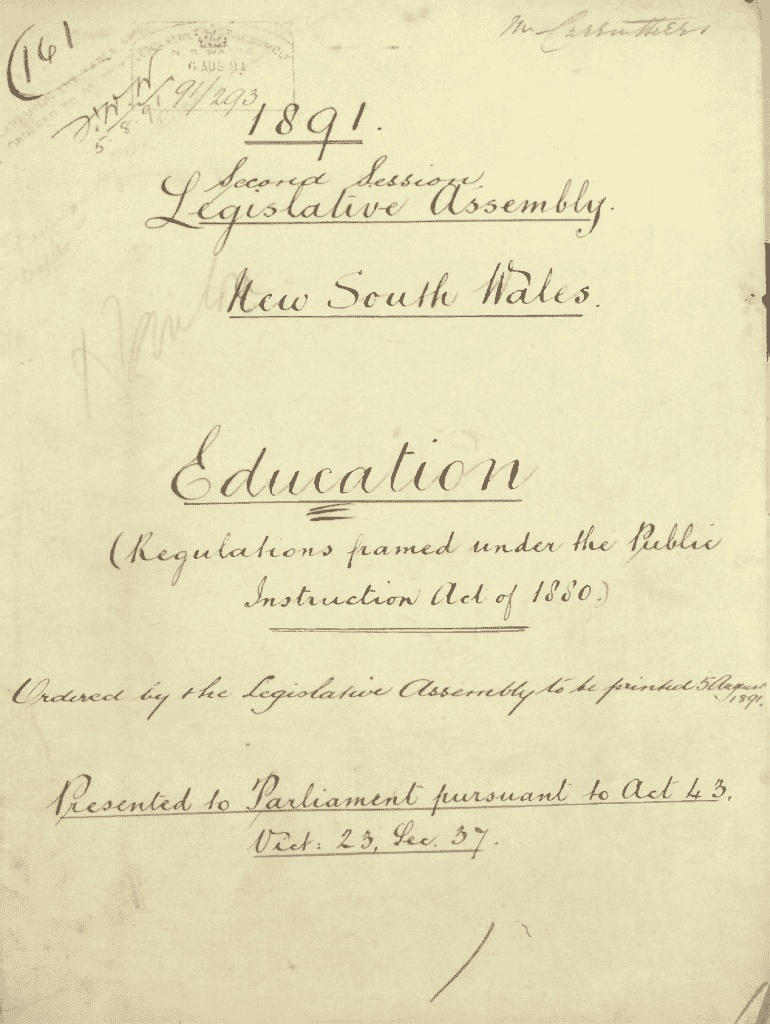 (161
Mr Carruthers
6 AUG 91
5/8/91
91/293
1891.
Second Session.
Legislative Assembly.
New South Wales.
Education
(Regulations framed under the Public
Instruction Act of 1880.)
Ordered by the Legislative Assembly to be printed 5 August
1891.
Presented to Parliament pursuant to Act 43.
Vict: 23, Sec. 37.